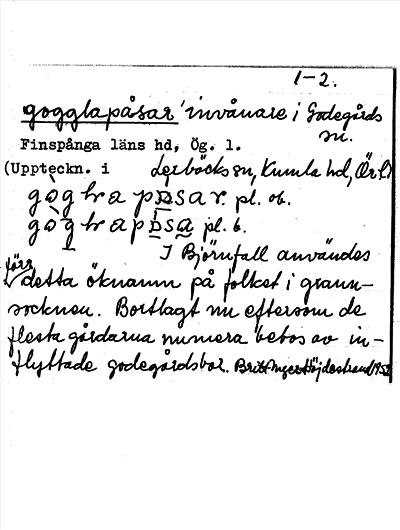 1-2.
gogglapåsar 'invånare i Godegårds
sn.
Finspånga läns hd, Ög. l.
(Uppteckn. i Lerbäcks sn, Kumla hd, Ör. l.)
pl. ob.
pl. b.
I Björnfall användes
förr detta öknamn på folket i grann-
socknen. Bortlagt nu eftersom de
flesta gårdarna numera bebos av in-
flyttade godegårdsbor. Britt Inger Höjdestrand 1952